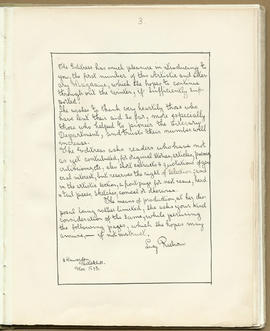 3
The Editress has much pleasure in introducing to
you, the first number of the Artistic and Liter
ary Magazine, which she hopes to continue
throughout the winter, if sufficiently sup-
ported.
She wishes to thank very heartily those who
have lent their aid so far, more especially
those who helped to the Literary
Department, and trusts their number will
increase.
The Editress asks readers who have not
as yet contributed, for original stories, articles,
also of gen
eral interest, but reserves the right of selection: and
in the artistic section, a front page for next issue, head
& tail pieces, sketches, comical or otherwise.
The means of production at her dis-
posal being rather limited, she asks your kind
consideration of the same, while perusing
the following pages, which she hopes may
amuse, — if not instruct.
Lucy
Nov.